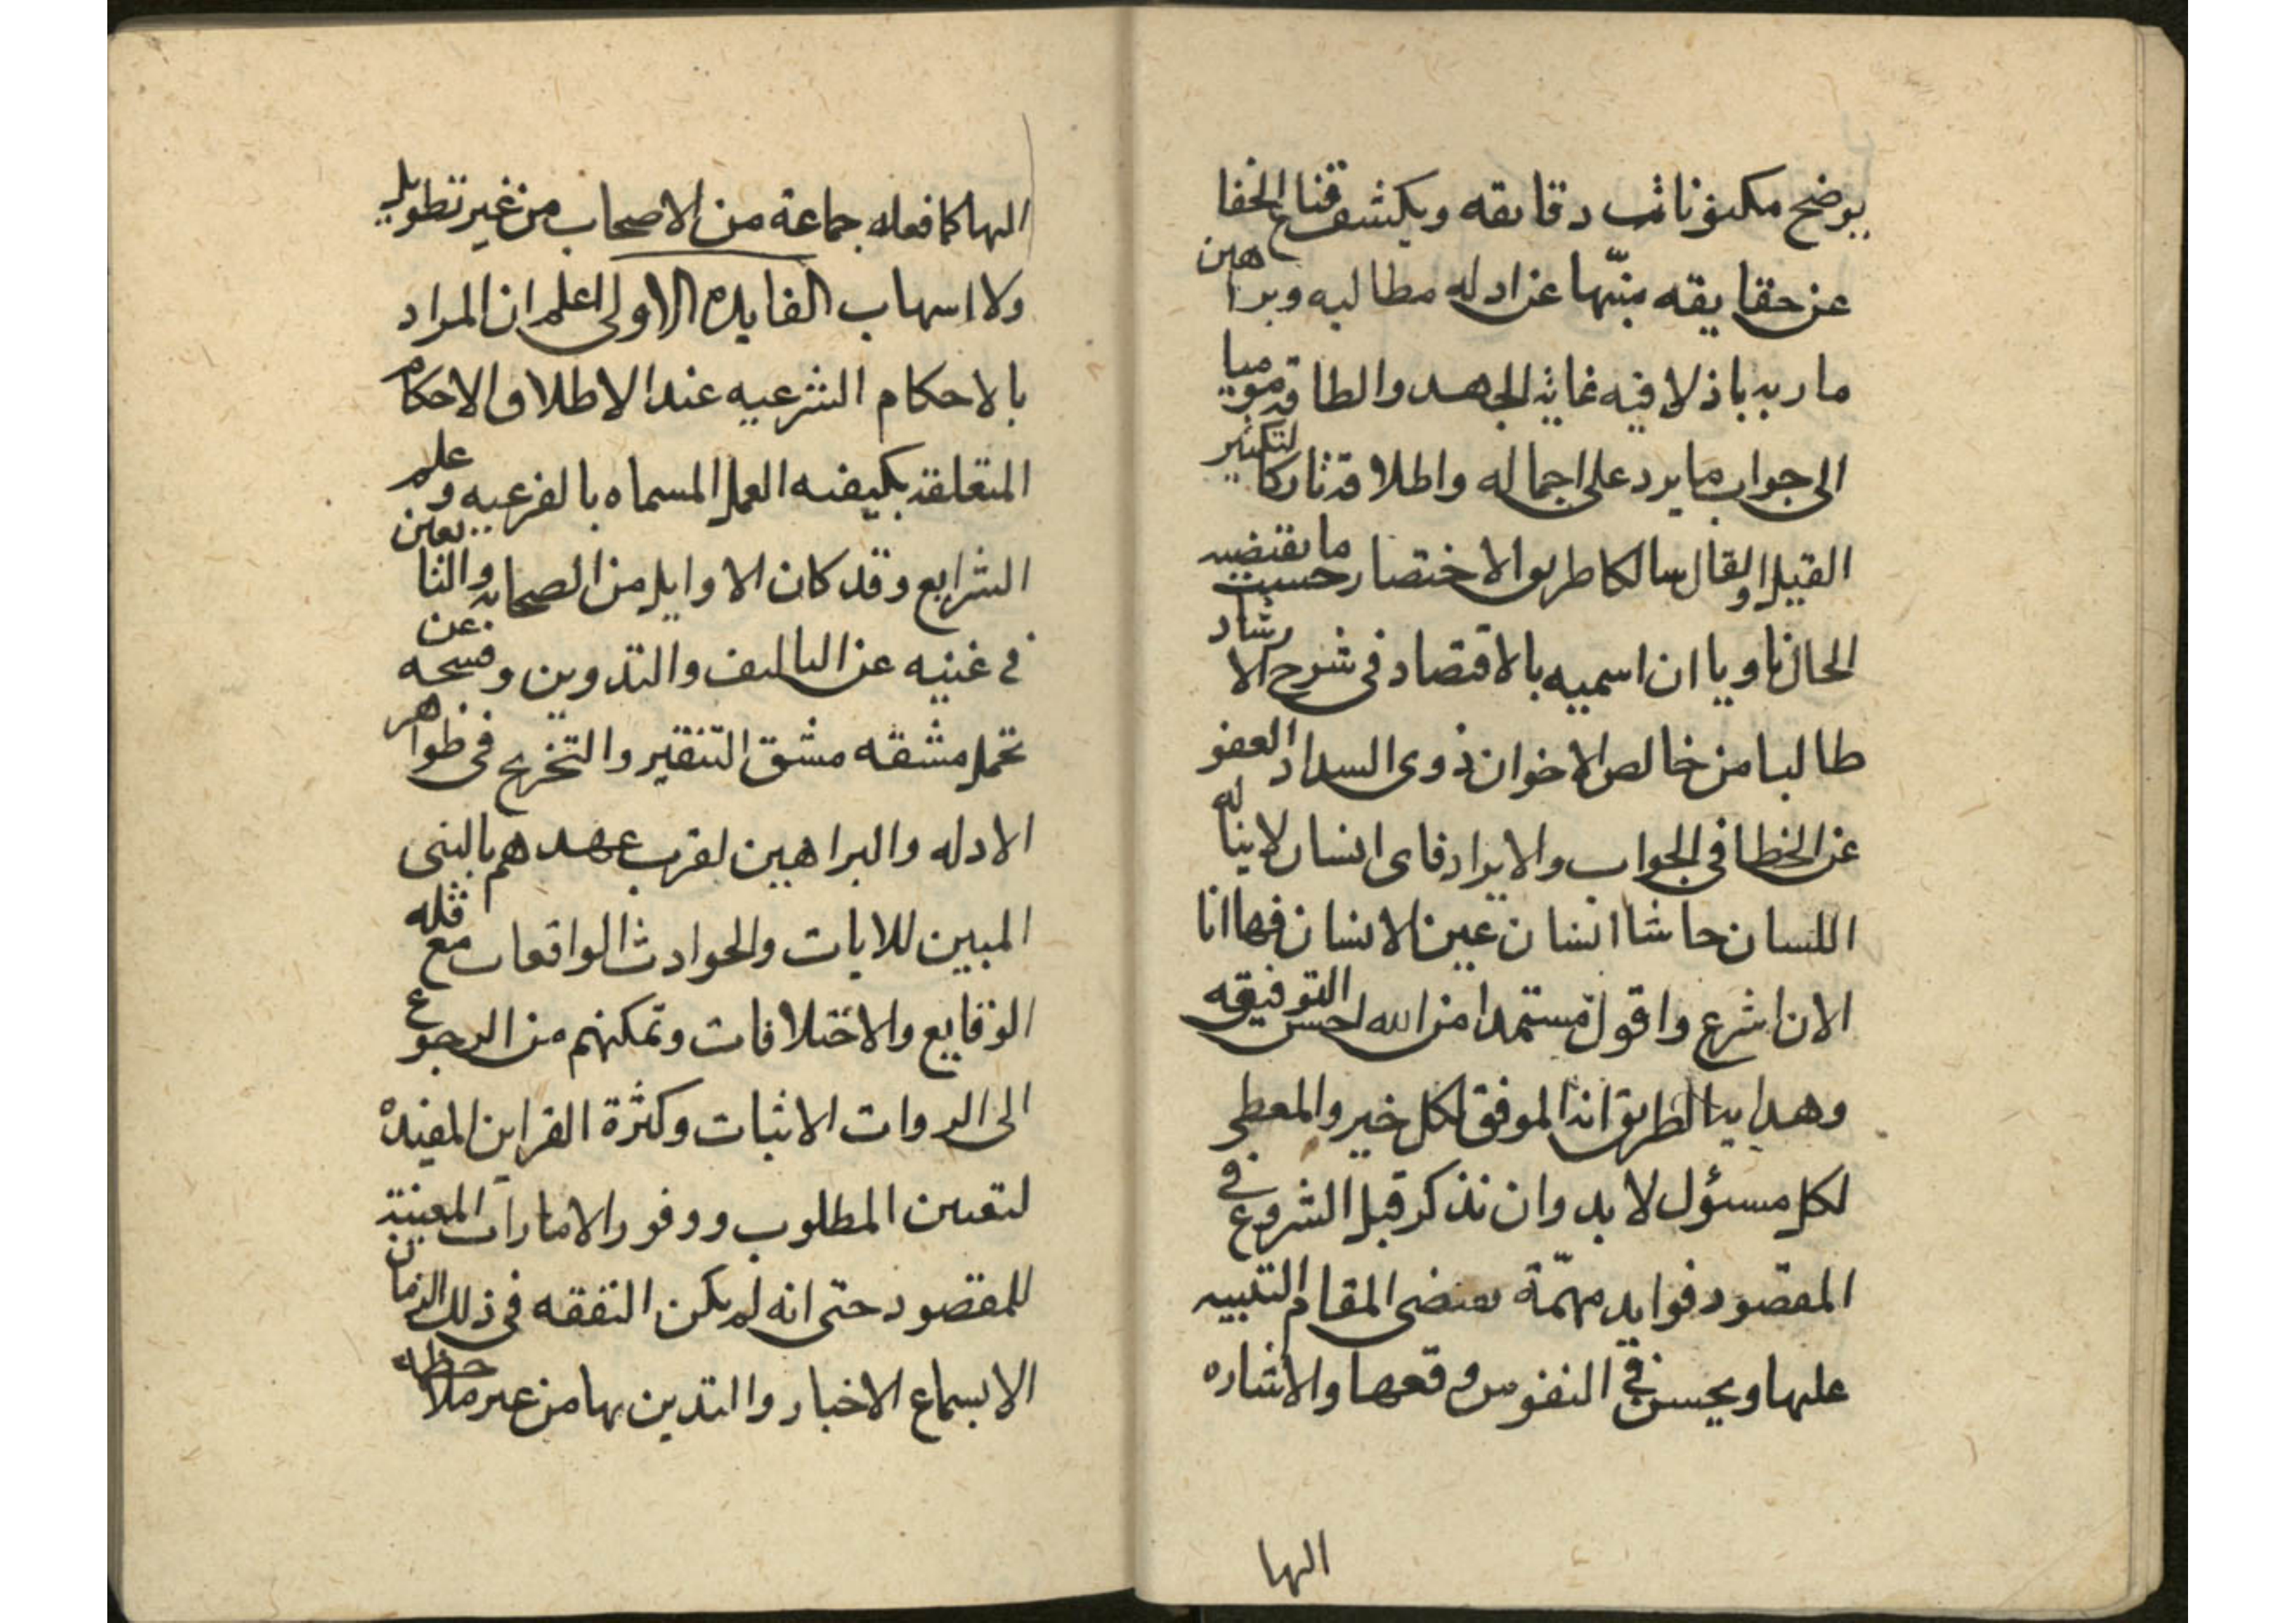 يوضح مكنونات دقايقه ويكشف قناع الخفا
عن حقايقه منبّها عن ادله مطالبه وبراهين
ماربه باذلا فيه غاية الجهد والطاقة موميا
الى جواب ما يرد على اجماله واطلاقة تاركا لتكثير
القيل والقال سالكا طريق الاختصار حسبت ما يقتضيه
الحال ناويا ان اسميه بالاقتصاد في شرح الارشاد
طالبا من خالص الاخوان ذوى السداد العفو
عن الخطا في الجواب والايراد فاى انسان لا يناله
اللسان حاشا انسان عين الانسان فها انا
الان اشرع واقول مستمدا من الله احسن التوفيقه
وهدايتا لطريق انه الموفق لكل خير والمعطى
لكل مسئول لا بد وان نذكر قبل الشروع في
المقصود فوايد مهمّة يقتضى المقام التنبيه
عليها ويحسن في النفوس وقعها والاشاره
اليها
اليها كما فعله جماعة من الاصحاب من غير تطويل
ولا اسهاب الفايده الاولى اعلم ان المراد
بالاحكام الشرعيه عند الاطلاق الاحكام
المتعلقة بكيفيه العمل المسماه بالفرعيه وعلم
الشرايع وقد كان الاوايل من الصحابه والتابعين
في غنيه عن التاليف والتدوين وفسحه عن
تحمل مشقه مشق التنقير والتخريج في ظواهر
الادله والبراهين لقرب عهدهم بالنبى
المبين للايات والحوادث الواقعات مع قله
الوقايع والاختلافات وتمكنهم من الرجوع
الى الروات الاثبات وكثرة القراين المفيده
لتعيين المطلوب ووفور الامارات المعينة
للمقصود حتى انه لم يكن التفقه في ذلك الزمان
الا بسماع الاخبار والتدين بها من غير ملاحظه